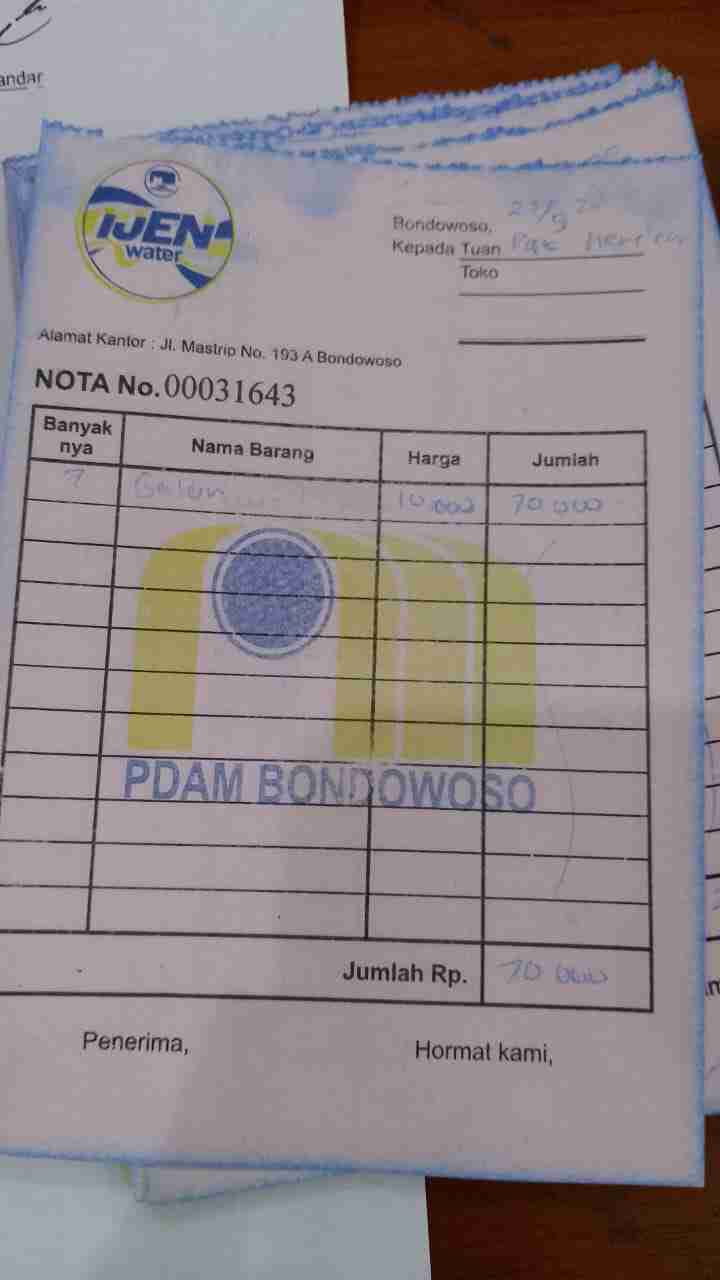 andar
iJEN
water
Bondowoso,
Kepada Tuan Pak
Toko
Alamat Kantor : Jl. Mastrip No. 193 A Bondowoso
NOTA No. 00031643
Banyak nya Nama Barang Harga Jumlah
7 Galon 10.000 70 000
PDAM BONDOWOSO
Jumlah Rp. 70 000
Penerima, Hormat kami,